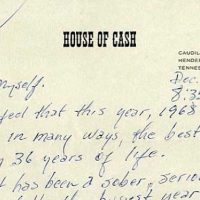 HOUSE OF CASH
CAUDIL
HENDER
TENNES
Dec.
8:35
myself.
feel that this year, 1968
in many ways, the best
36 years of life.
has been a sober, serious
year